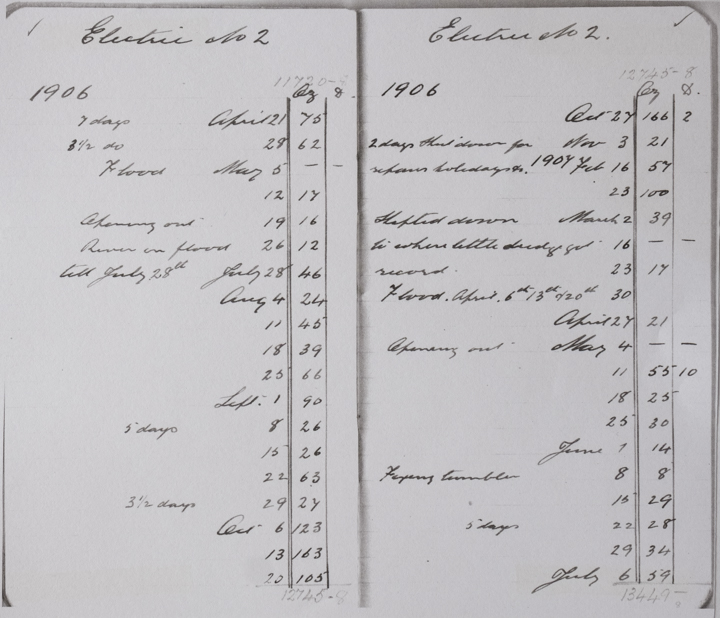 Electric No 2
11720-8
1906 Oz D.
7 days April 21 75
3½ do 28 62
Flood May 5 — —
12 17
Opening out 19 16
River in flood 26 12
till July 28th July 28 46
Aug 4 24
11 45
18 39
25 66
Sept. 1 90
5 days 8 26
15 26
22 63
3½ days 29 27
Oct 6 123
13 163
20 105
12745-8
Electric No 2.
12745-8
1906 Oz D.
Oct 27 166 2
2 days shut down for Nov 3 21
repairs holidays &. 1907 Feb 16 57
23 100
Shifted down March 2 39
to where little dredge got 16 — —
record. 23 17
Flood. April. 6th 13th & 20th 30
April 27 21
Opening out May 4 — —
11 55 10
18 25
25 30
June 1 14
Fixing tumbler 8 8
15 29
5 days 22 28
29 34
July 6 59
13449-